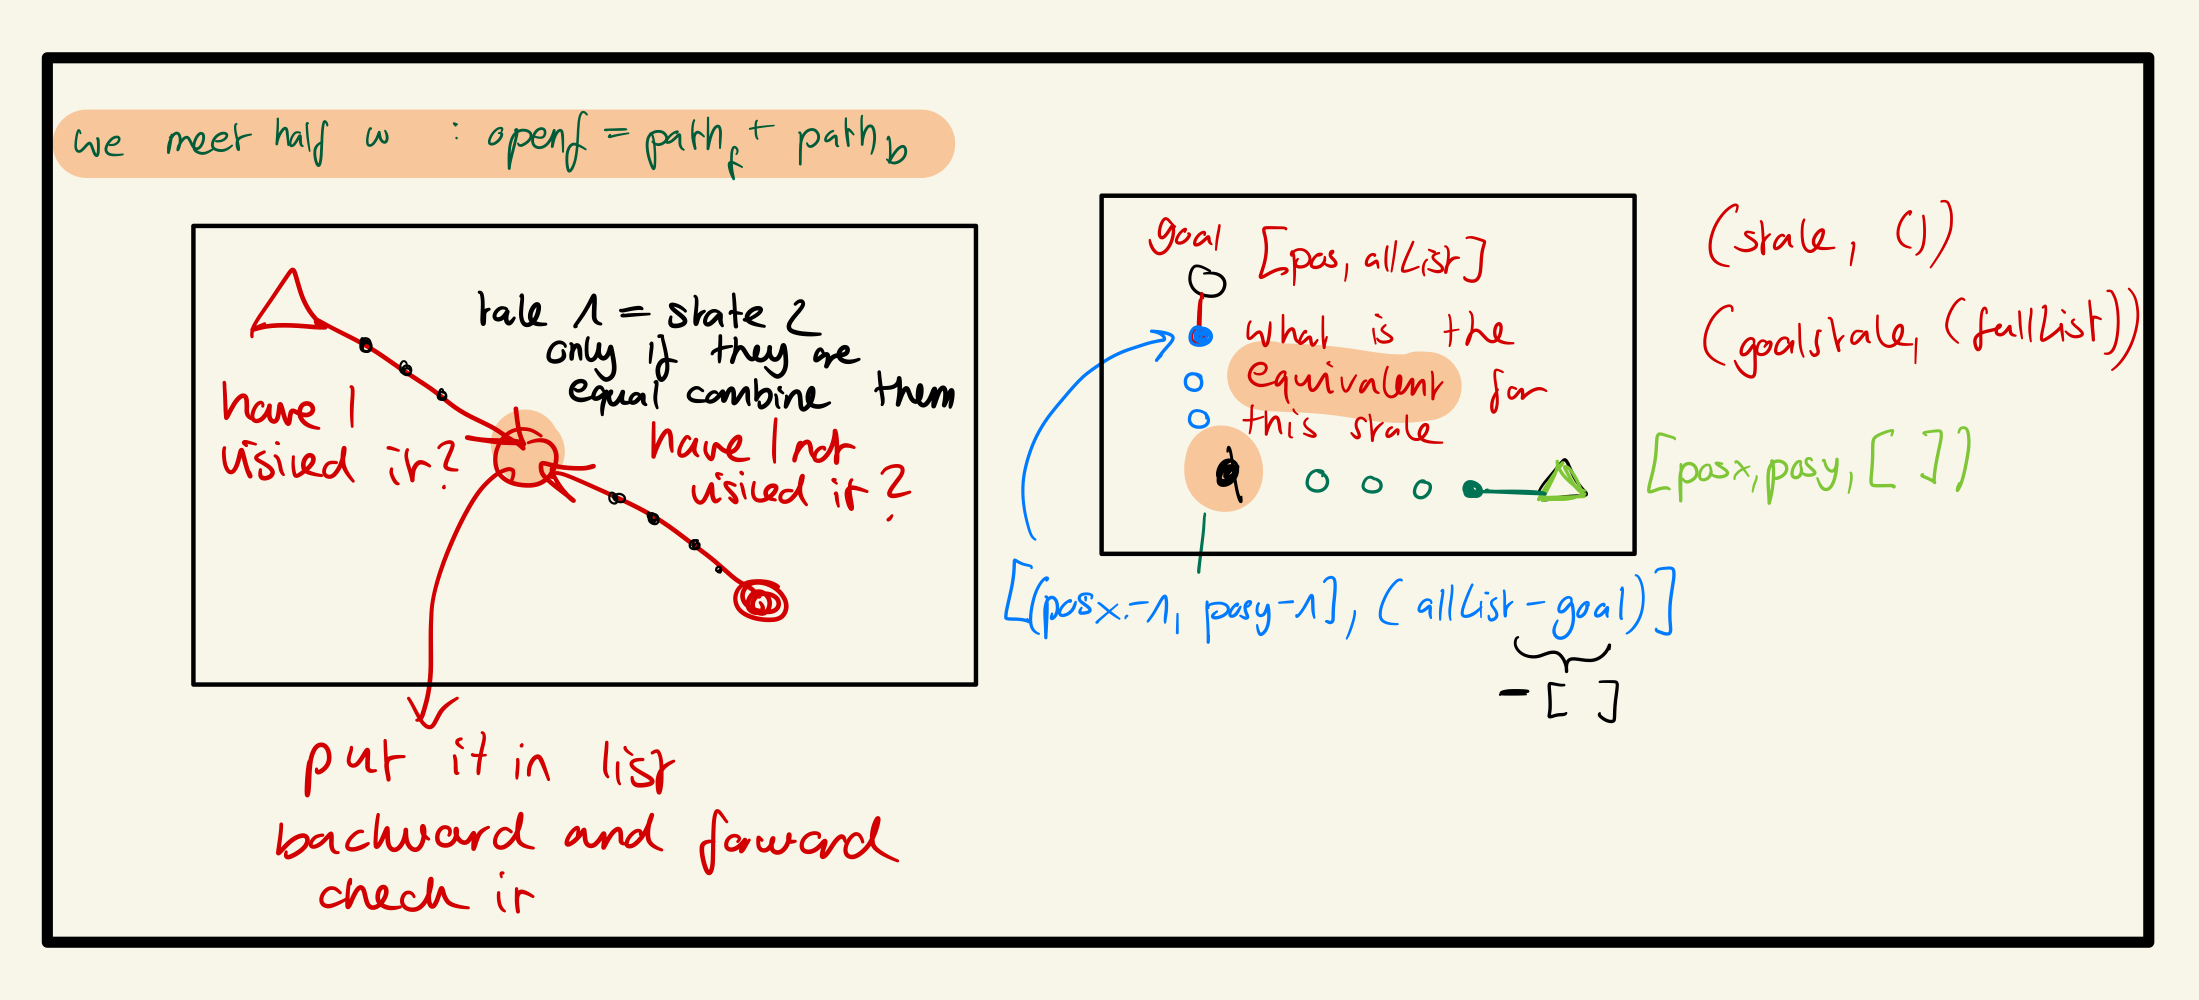 we meet half w : openf = path_f + path_b
tale 1 = state 2
only if they are
equal combine them
have I
visited it?
have I not
visited it?
put it in list
backward and forward
check it
goal [pos, allList]
what is the
equivalent for
this state
[(posx-1, posy-1], (allList-goal)]
- [ ]
(state, ())
(goalstate, (fullList))
[posx, posy, [ ])